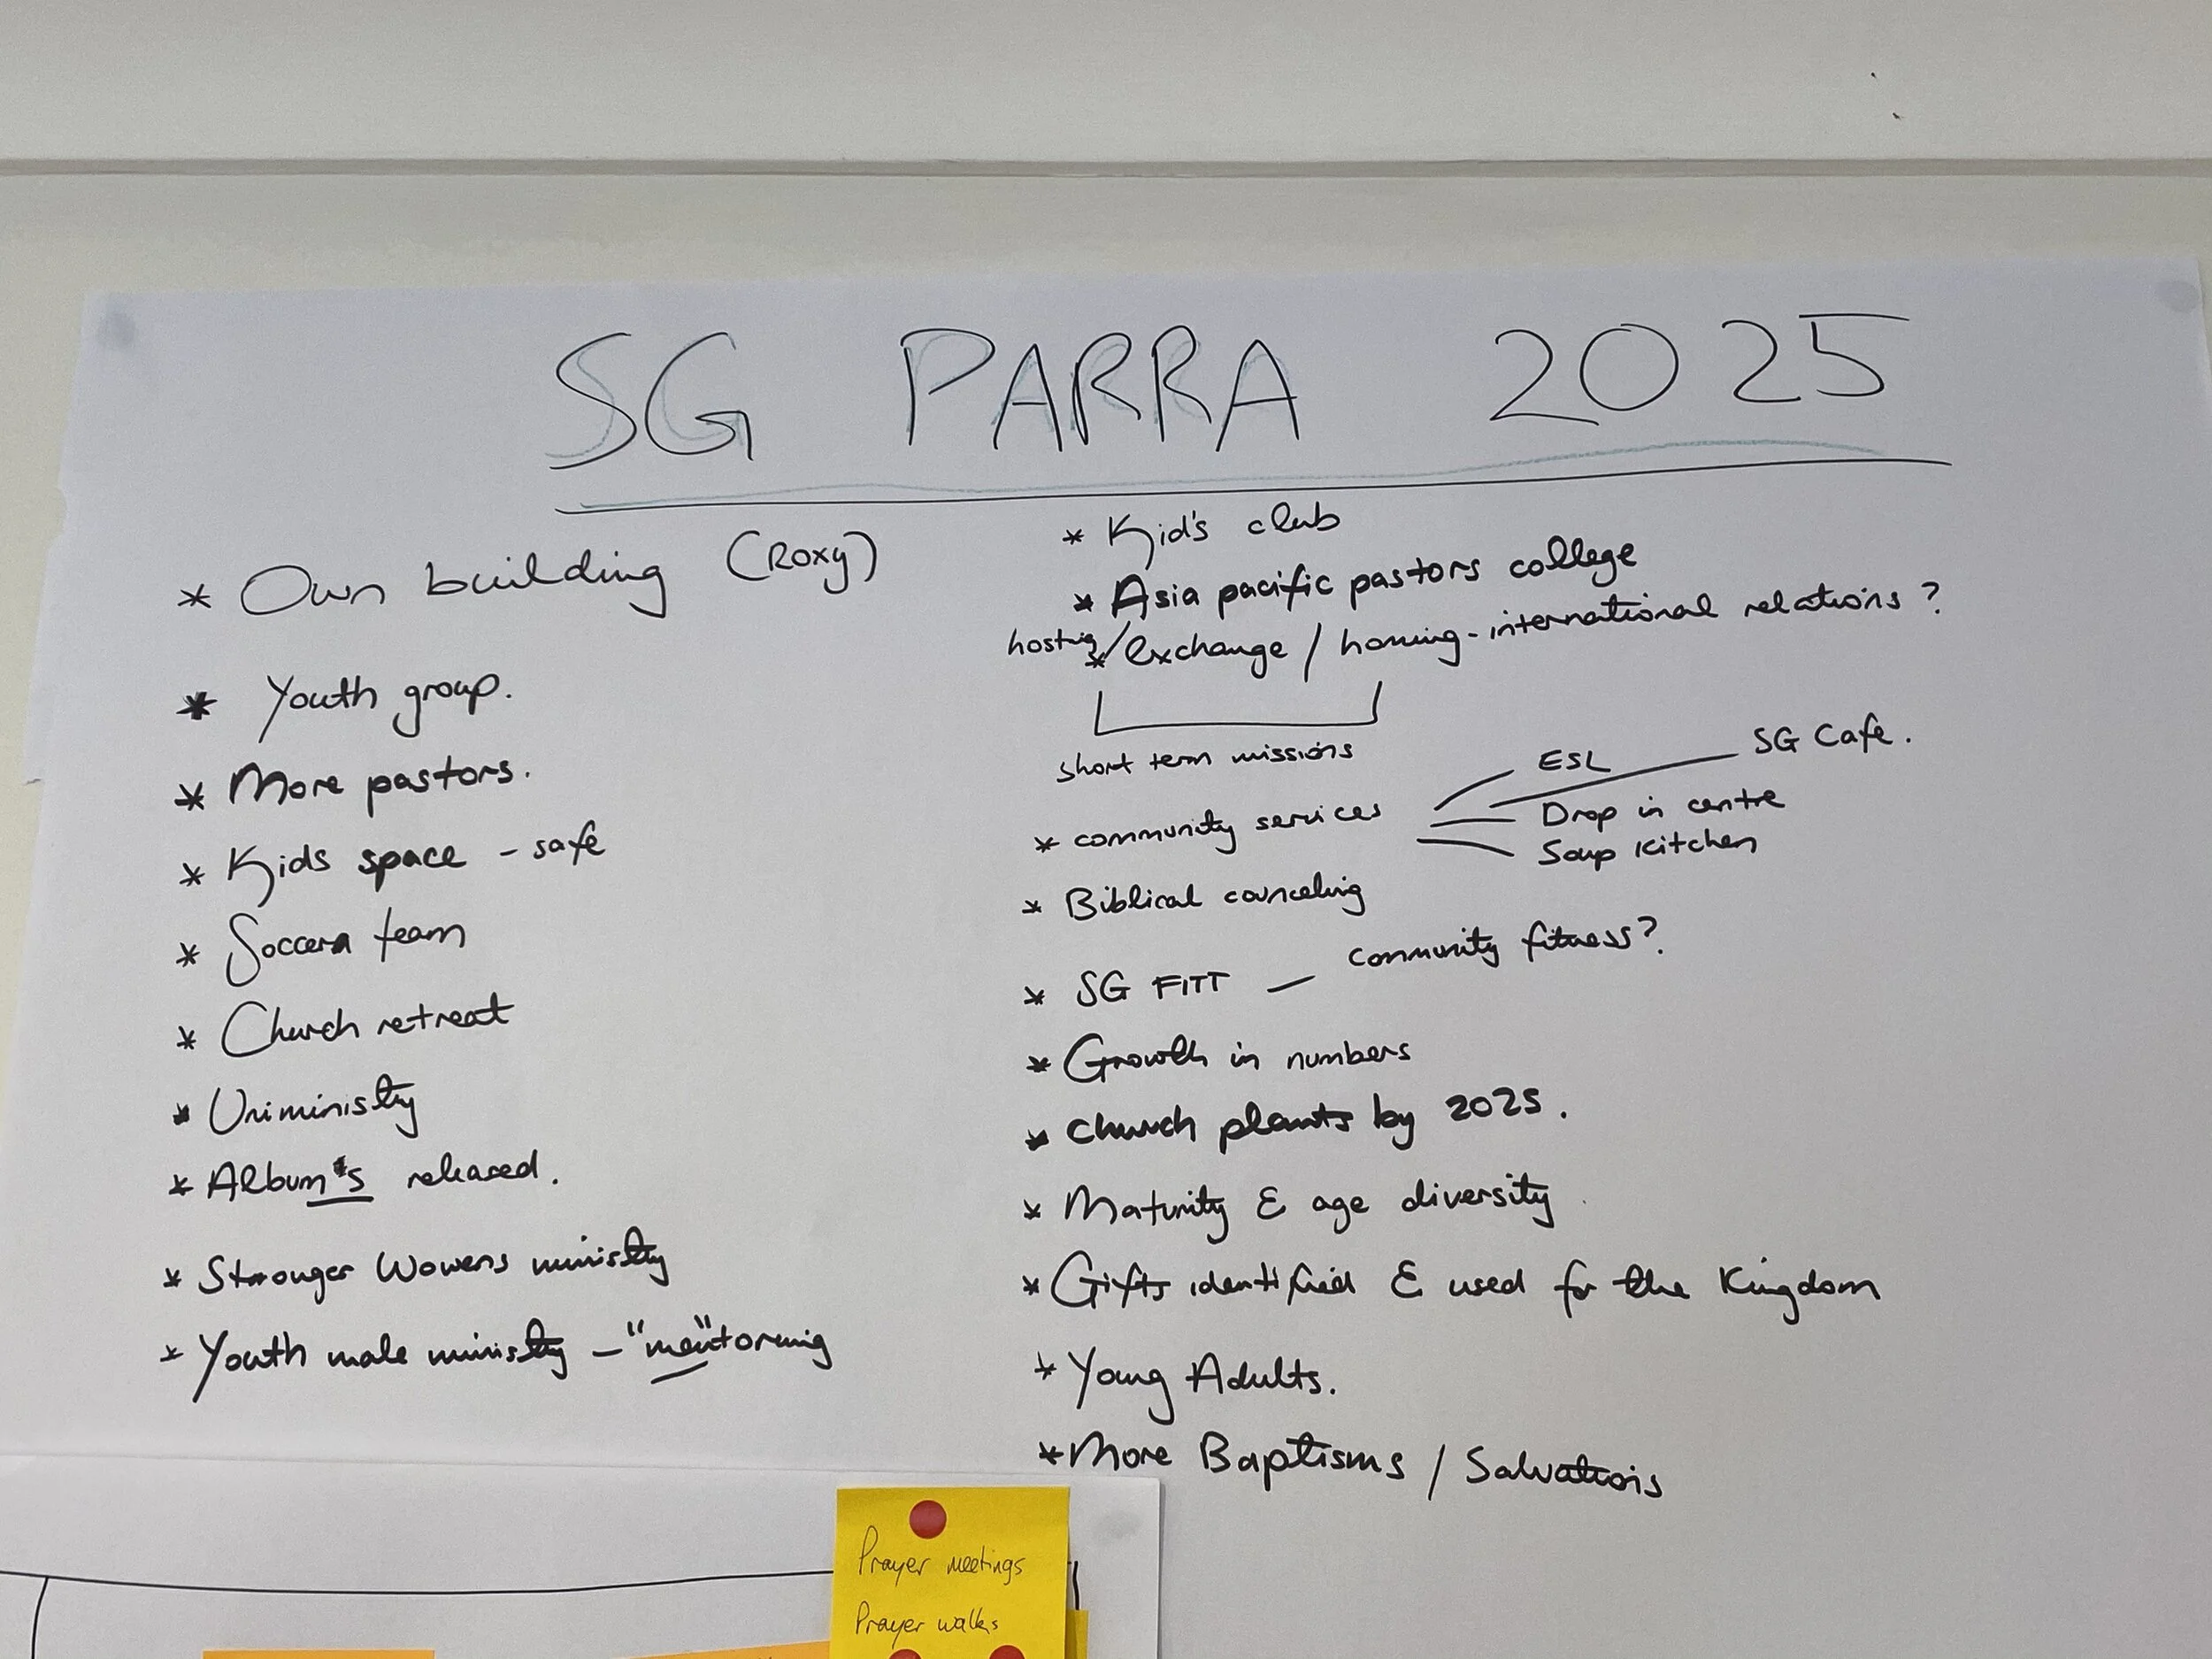 SG PARRA 2025
* Own building (Roxy)
* Youth group.
* More pastors.
* Kids space - safe
* Soccer team
* Church retreat
* Uni ministry
* Album's released.
* Stronger Womens ministry
* Youth male ministry - "mentoring"
* Kid's club
* Asia pacific pastors college
hosting / * exchange / homing - international relations?
short term missions
* community services
ESL
SG Cafe.
Drop in centre
Soup Kitchen
* Biblical counceling
* SG FITT — community fitness?
* Growth in numbers
* church plants by 2025.
* Maturity & age diversity
* Gifts identified & used for the Kingdom
* Young Adults.
* More Baptisms / Salvations
Prayer meetings
Prayer walks